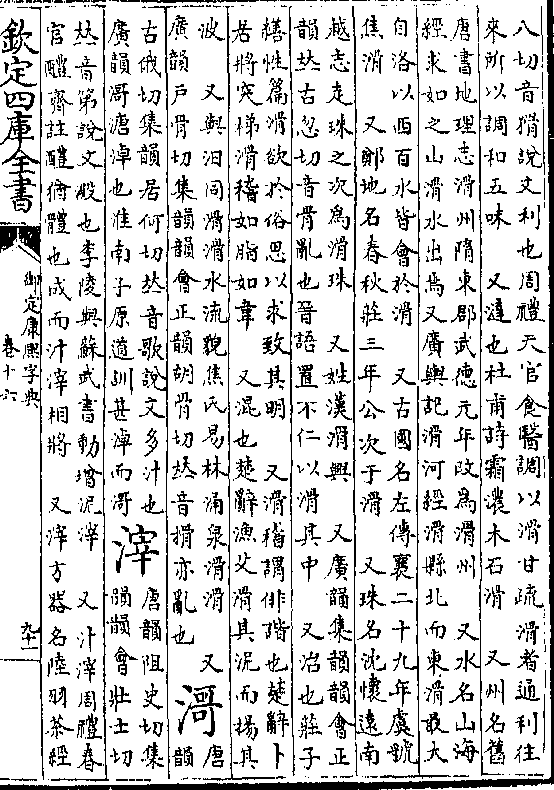 八切音猾說文利也周禮天官食醫調以滑甘疏滑者通利往
來所以調和五味　又澾也杜甫詩霜濃木石滑　又州名舊
唐書地理志滑州隋東郡武德元年改為滑州　又水名山海
經求如之山滑水出焉又廣輿記滑河經滑縣北而東滑最大
自洛以西百水皆會於滑　又古國名左傳襄二十九年虞虢
焦滑　又鄭地名春秋莊三年公次于滑　又珠名沈懷遠南
越志走珠之次為滑珠　又姓漢滑興　又廣韻集韻韻會正
韻𠀤古忽切音骨亂也晉語置不仁以滑其中　又治也莊子
繕性篇滑欲於俗思以求致其明　又滑稽謂俳諧也楚辭卜
居將突梯滑稽如脂如韋　又混也楚辭漁父滑其泥而揚其
波　又與汩同滑滑水流貌焦氏易林涌泉滑滑　又唐
廣韻戶骨切集韻韻會正韻胡骨切𠀤音搰亦亂也　滒　韻
古俄切集韻居何切𠀤音歌說文多汁也　滓　唐韻阻史切集
廣韻滒溏淖也淮南子原道訓甚淖而滒　韻韻會壯士切
𠀤音第說文澱也李陵與蘇武書動增泥滓　又汁滓周禮春
官醴齊註醴猶體也成而汁滓相將　又滓方器名陸羽茶經
欽定四庫全書
御定康熙字典
卷十六
九十一